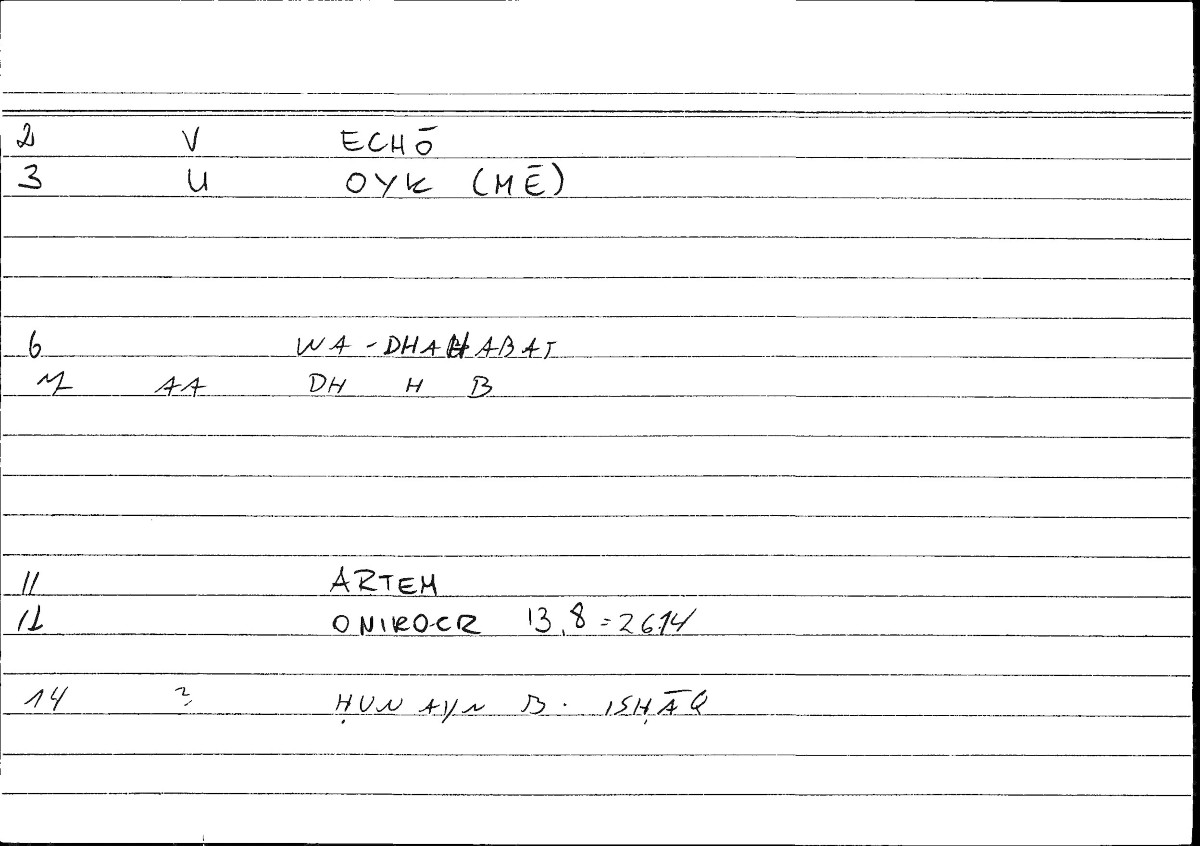 2 V ECHŌ
3 U OYK (MĒ)
6 WA-DHAHABAT
7 AA DH H B
11 ARTEM
12 ONIROCR 13,8=26.14
14 ? ḤUNAYN B. ISḤĀQ